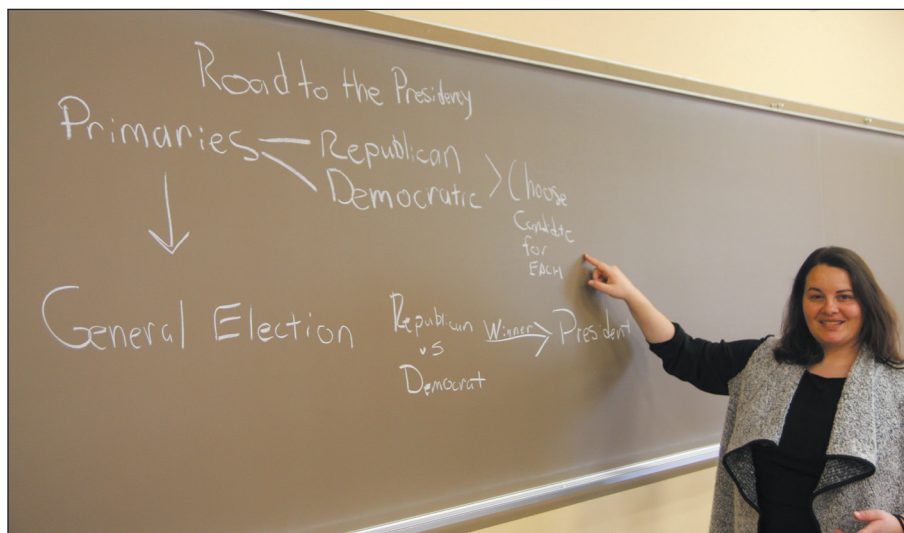 Road to the Presidency
Primaries
Republican
Democratic
Choose
Candidate
for
EACH
General Election
Republican
vs
Democrat
Winner
President